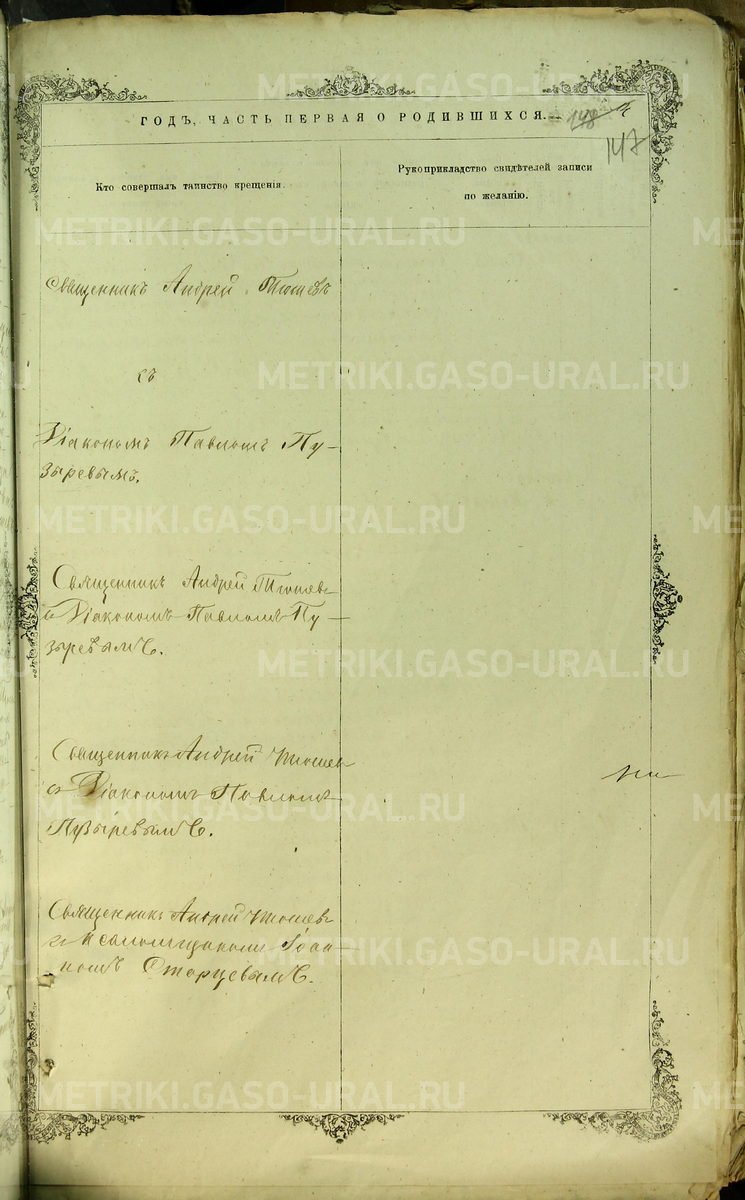 ГОДЪ, ЧАСТЬ ПЕРВАЯ О РОДИВШИХСЯ.
148
147
Кто совершалъ таинство крещенія.
Рукоприкладство свидѣтелей записи
по желанію.
Священникъ Андрей
съ
Діакономъ Павломъ Пу-
зыревымъ.
Священникъ Андрей
съ Діакономъ Павломъ Пу-
зыревымъ.
Священникъ Андрей
съ Діакономъ Павломъ
Пузыревымъ.
Священникъ Андрей
съ Псаломщикомъ Іоан-
номъ Старцевымъ.
METRIKI.GASO-URAL.RU